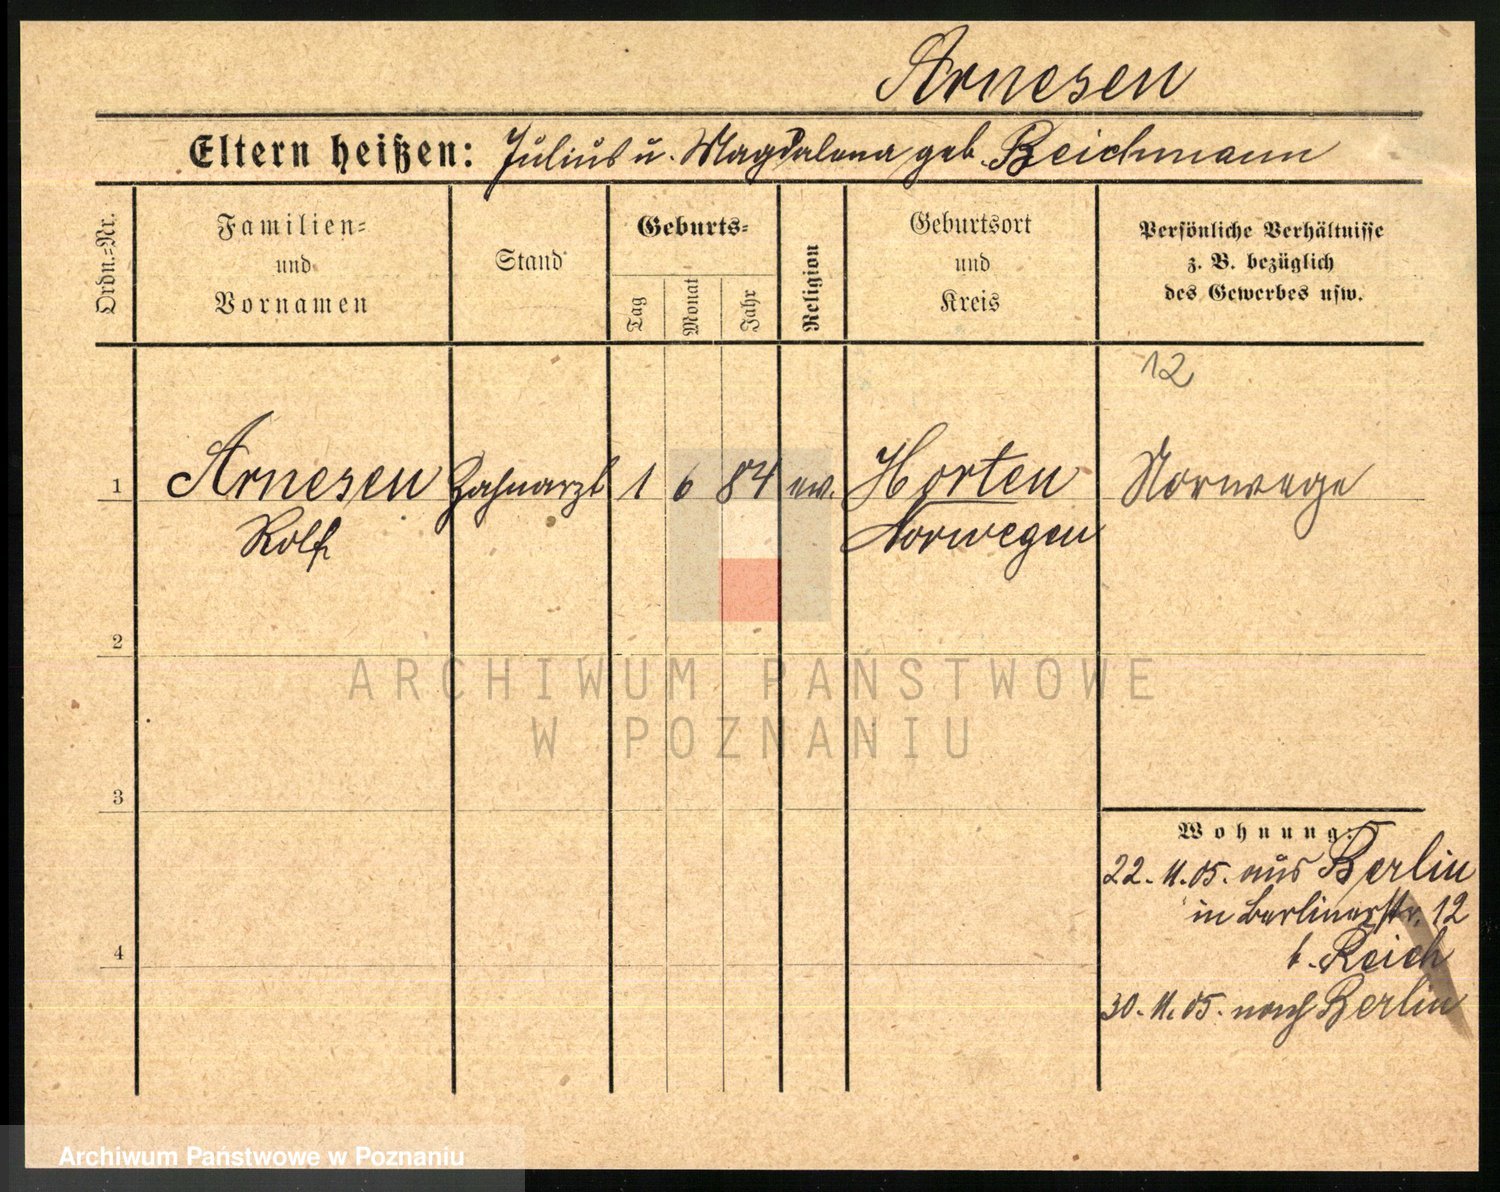 Arnesen
Eltern heißen: Julius u. Magdalena geb. Reichmann
Ordn.=Nr.
Familien=
und
Vornamen
Stand
Geburts=
Tag
Monat
Jahr
Religion
Geburtsort
und
Kreis
Persönliche Verhältnisse
z. B. bezüglich
des Gewerbes usw.
12
1 Arnesen Zahnarzt 1 6 84 ev. Horten Norwege
Rolf Norwegen
2
ARCHIWUM PAŃSTWOWE
W POZNANIU
3
Wohnung:
22. 11. 05. aus Berlin
in Berlinerstr. 12
b. Reich
4
30. 11. 05. nach Berlin
Archiwum Państwowe w Poznaniu